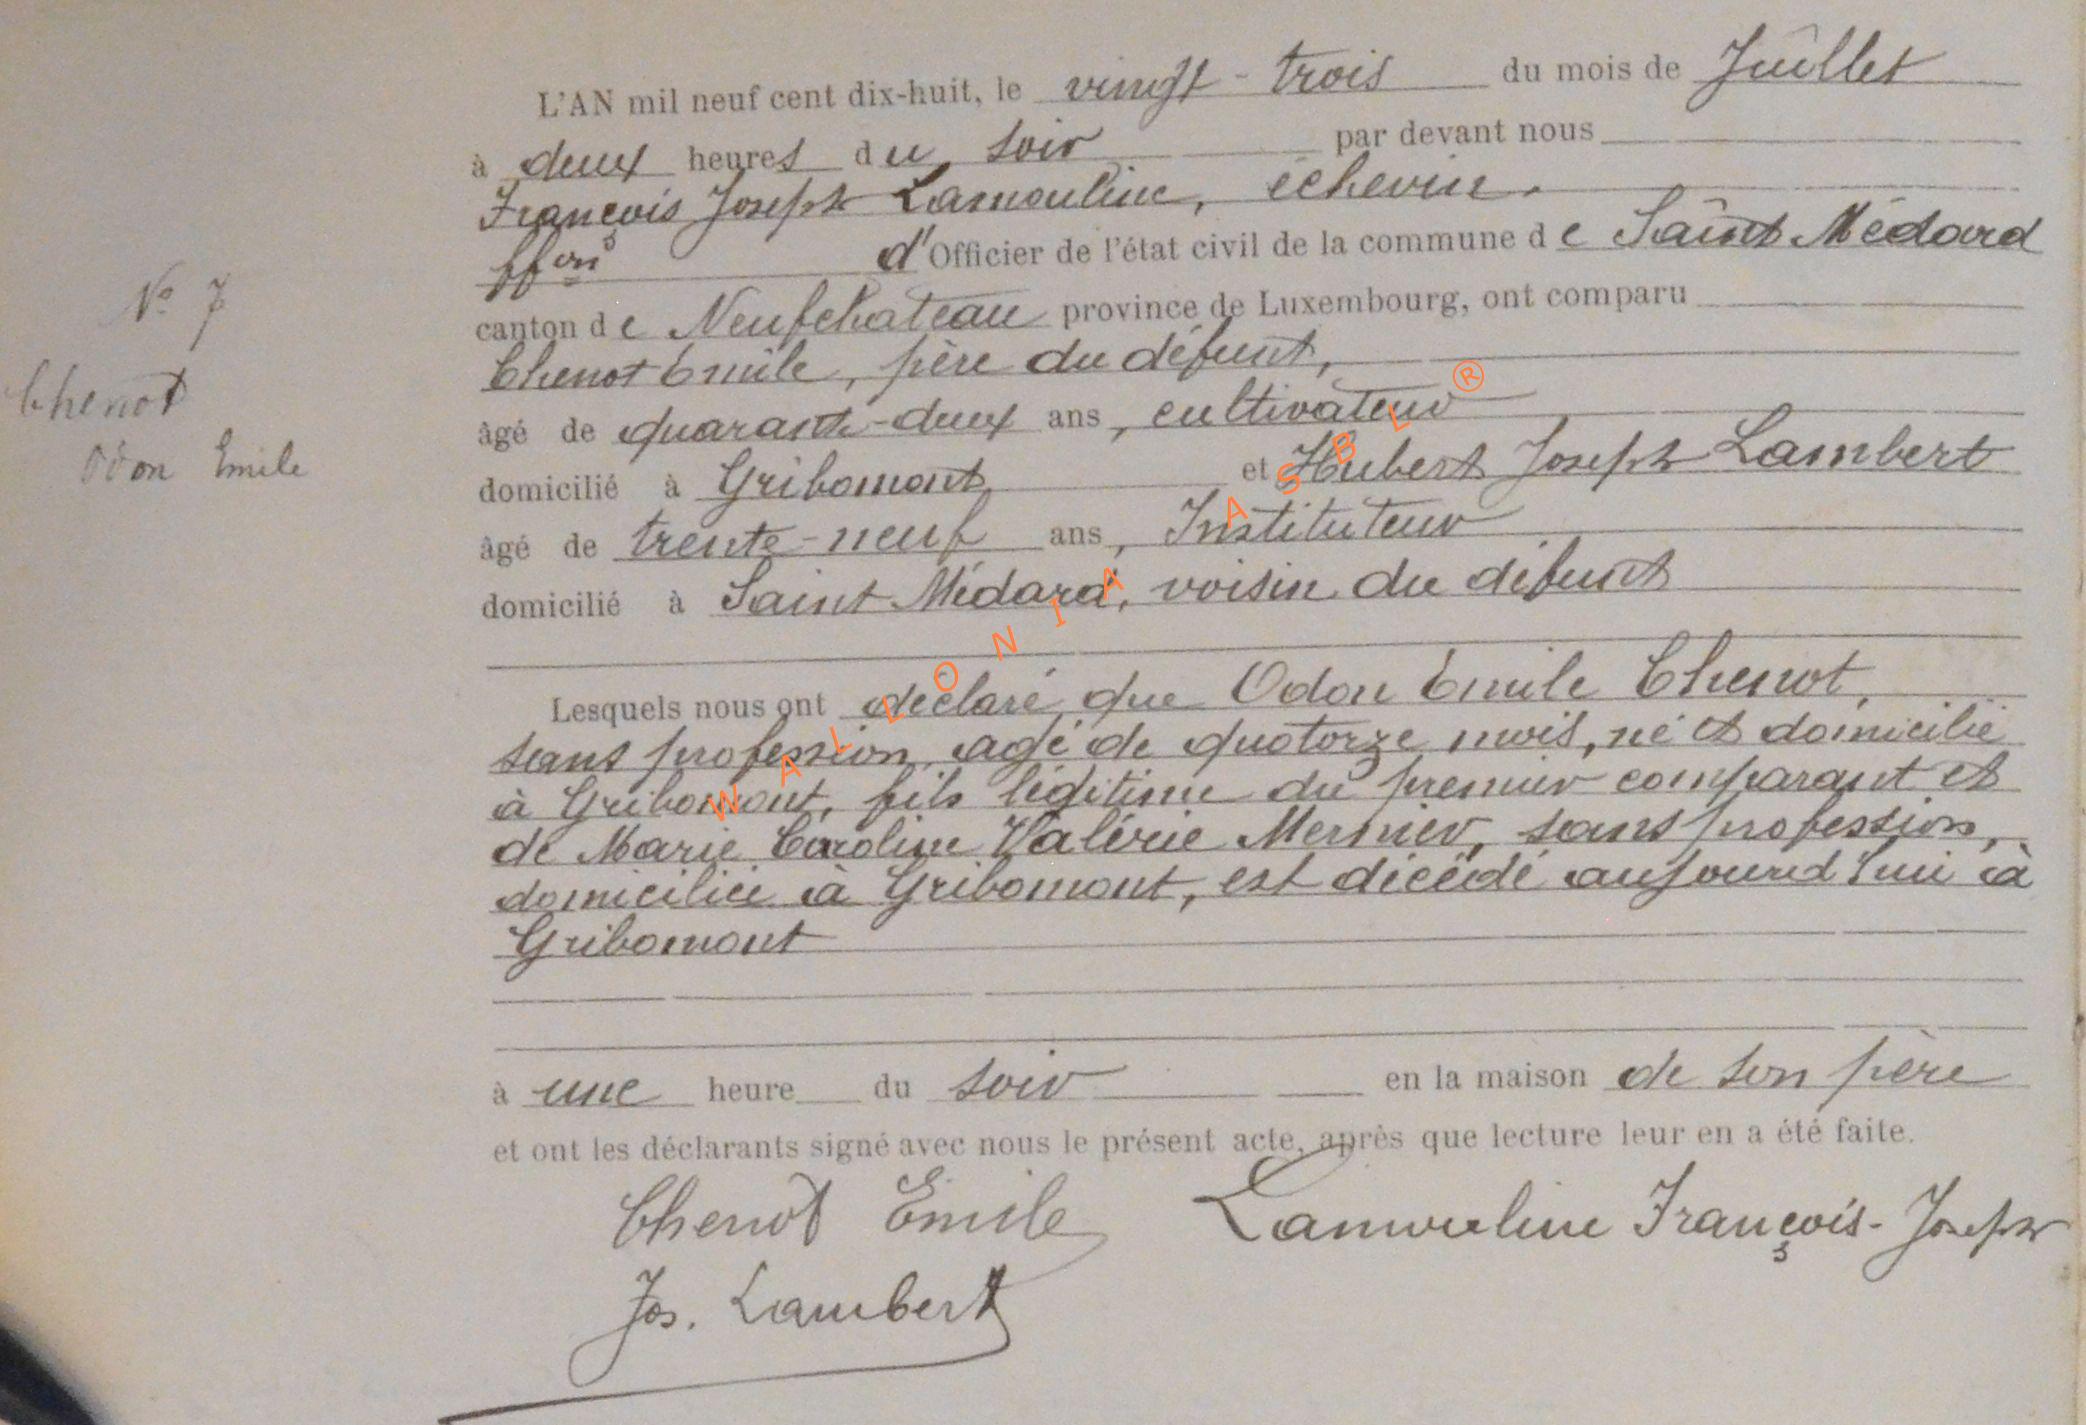 L'AN mil neuf cent dix-huit, le vingt-trois du mois de Juillet
à deux heures du soir par devant nous
François Joseph Lamouline, échevin.
ffons d'Officier de l'état civil de la commune de Saint Médard
N° 7
canton de Neufchateau province de Luxembourg, ont comparu
Chenot Emile, père du défunt,
Chenot
âgé de quarante-deux ans, cultivateur
Odon Emile
domicilié à Gribomont et Hubert Joseph Lambert
âgé de trente-neuf ans, Instituteur
domicilié à Saint Médard, voisin du défunt
Lesquels nous ont déclaré que Odon Emile Chenot,
sans profession, agé de quatorze mois, né et domicilié
à Gribomont, fils légitime du premier comparant et
de Marie Caroline Valérie Mernier, sans profession,
domiciliée à Gribomont, est décédé aujourd'hui à
Gribomont
à une heure du soir en la maison de son père
et ont les déclarants signé avec nous le présent acte, après que lecture leur en a été faite.
Chenot Emile Lamouline François-Joseph
Jos. Lambert
WALLONIA ASBL ®